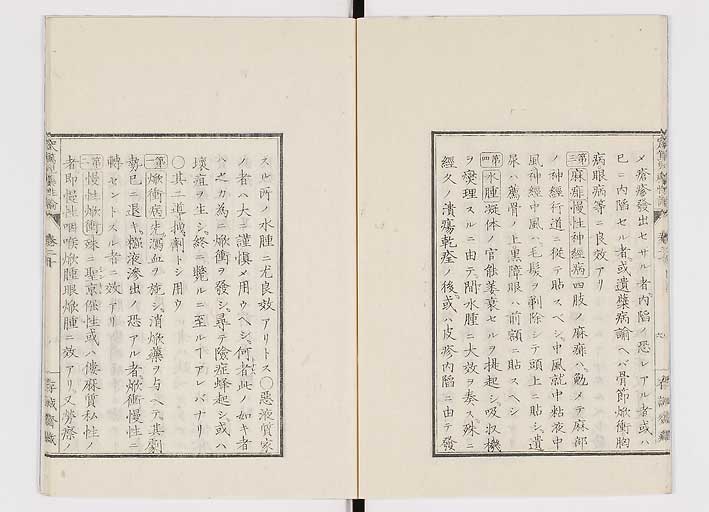 メ疹瘡發出セサル者内陷ノ恐レアル者或ハ
已ニ内陷セル者或遺蘖病諭ヘバ骨節焮衝胸
病眼病等ニ良效アリ
第三 麻痺慢性神經病 四肢ノ麻痺ハ勉メテ麻部
ノ神經行道ニ從テ貼スベシ中風就中粘液中
風神經中風ハ毛髮ヲ剃除シテ頭上ニ貼シ遺
尿ハ薦骨ノ上黒障眼ハ前額ニ貼スヘシ
第四 水腫 凝体ノ官能萎衰セルヲ提起シ吸收機
ヲ爕理スルニ由テ間水腫ニ大效ヲ奏ス殊ニ
經久ノ潰瘍乾痊ノ後或ハ皮疹内陷ニ由テ發
スル所ノ水腫ニ尤良效アリトス〇惡液質家
ノ者ハ大ニ謹慎メ用ウヘシ何者此ノ如キ者
ハ之カ為ニ焮衝ヲ發シ尋テ險症蜂起シ或ハ
壊疽ヲ生シ終ニ斃ルニ至ルヿアレバナリ
〇其二導摶劑トシ用ウ
第一 焮衝病 先瀉血ヲ施シ消焮藥ヲ与ヘテ其劇
勢已ニ退キ極液滲出ノ恐アル者焮衝慢性ニ
轉セントスル者ニ效アリ
第二 慢性焮衝 殊ニ聖京倔性或ハ僂麻質私性ノ
者即慢性咽喉焮腫眼焮腫ニ效アリ又勞瘵ノ
卷二
六
存誠齋藏
存誠齋藏